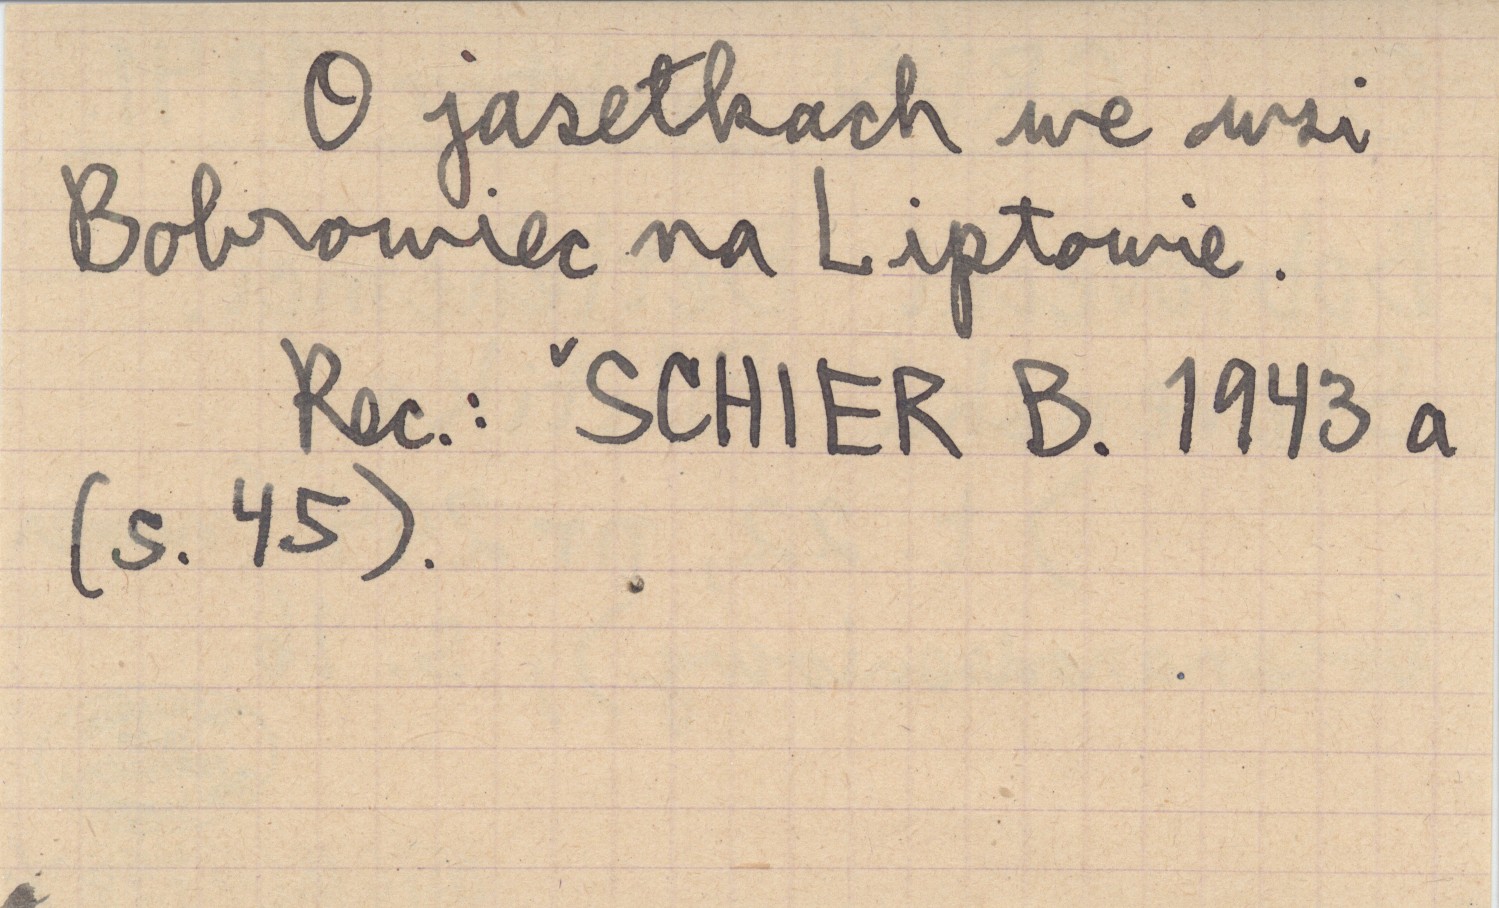 O jasetkach we wsi
Bobrowiec na Liptowie.
Rec.: ˇSCHIER B. 1943 a
(s. 45).